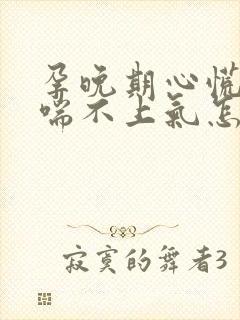 孕晚期心慌
喘不上气怎
寂寞的舞者3